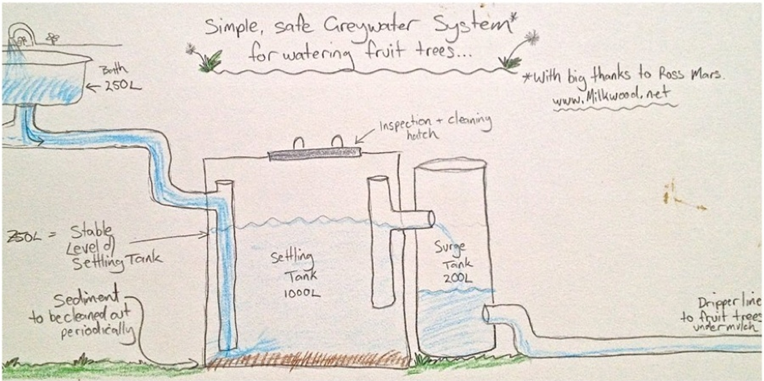 Simple, safe Greywater System*
for watering fruit trees...
*With big thanks to Ross Mars.
www.Milkwood.net
Bath
250L
Inspection + cleaning
hatch
750L = Stable
Level of
Settling Tank
Settling
Tank
1000L
Surge
Tank
200L
Sediment
to be cleaned out
periodically
Dripperline
to fruit trees
under mulch